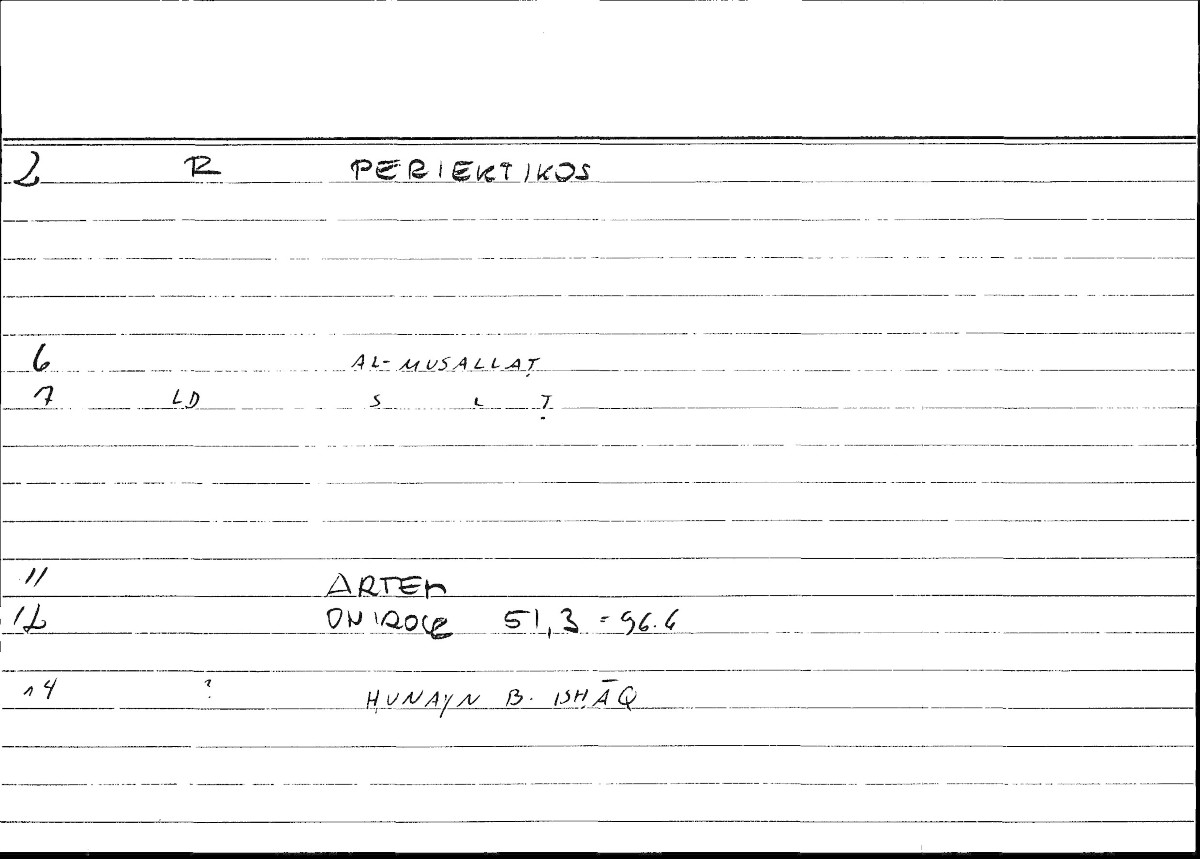 2 R PERIEKTIKOS
6 AL-MUSALLAṬ
7 LD S L Ṭ
11 ARTEM
12 ONIROCR 51,3 = 96.6
14 ? ḤUNAYN B. ISḤĀQ